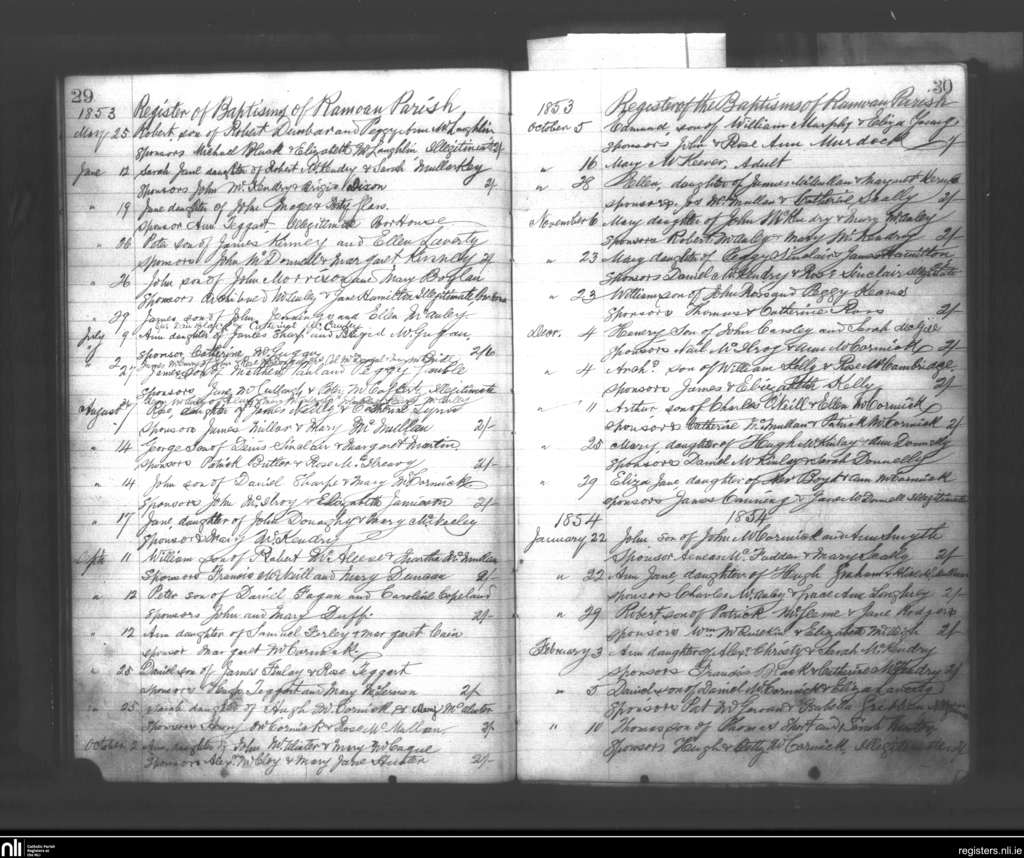 29
1853 Register of Baptisms of Ramoan Parish
May 25 Robert, son of Robert Dunbar and Peggy Ann McLaughlin
sponsors Michael Black & Elizabeth McLaughlin Illegitimate 2/-
June 12 Sarah Jane daughter of Robert McKendry & Sarah Mullarkey
Sponsors John McKendry & Dixon 2/-
" 19 Jane daughter of John Magee & Betty Glass.
Sponsor Ann Teggart Illegitimate Poor House
" 26 Peter son of James Kinney and Ellen Laverty
sponsors John McDonnell & Margaret Kennedy 2/-
" 26 John son of John Morrison and Mary Boylan
Sponsors Archibald McAuley & Jane Hamilton Illegitimate
" 29 James son of John Jennings and Ellen McAuley
& Catherine McCurdy
July 9 Ann daughter of James Sharp and Briged McGugan
sponsor Catherine McGuggan 2/6
" 24 James son of and Peggy
Sponsors Jane McCullagh & Illegitimate
August 7 Rose, daughter of James Reilly & Catherine Lynn
Sponsors James Millar & Mary McMullan 2/-
" 14 George son of Denis Sinclair & Margaret Martin
sponsors Patrick Butler & Rose McIlreavy 2/-
" 14 John son of Daniel Sharpe & Mary McCormick
Sponsors John McIlroy & Elizabeth Jamison 2/-
" 17 Jane, daughter of John Donaghy & Mary McKeeley
Sponsor Mary McKendry
Septr 11 William son of Robert McAleese & Martha McMullan
Sponsors Francis McNeill and Mary Duncan 2/-
" 12 Peter son of Daniel Fagan and Caroline Copeland
sponsors John and Mary Duffi 2/-
" 12 Ann daughter of Samuel Ferley & Margaret Cain
sponsor Margaret McCormick
" 25 Daniel son of James Finlay & Rose Teggart
sponsors Hugh Teggart and Mary McLernon 2/-
" 25 Sarah daughter of Hugh McCormick & Mary McAlister
Sponsors Henry McCormick & Rose McMullan 2/-
October 2 Ann, daughter of John McAlister & Mary McCaque
Sponsors Alexr McCloy & Mary Jane Hunter 2/-
30
1853 Register of the Baptisms of Ramoan Parish
October 5 Edmund, son of William Murphy & Eliza Young
sponsors John & Rose Ann Murdock
" 16 Mary McKeever, Adult
" 28 Ellen, daughter of James McMullan & Margaret
sponsors Jos McMullan & Catherine Scally 2/-
November 6 Mary daughter of John McKendry & Mary McAuley
Sponsors Robert McAuley & Mary McKendry 2/-
" 23 Mary daughter of Peggy Sinclair & James Hamilton
Sponsors Daniel McKendry & Rose Sinclair Illegitimate
" 23 William son of John Ross and Peggy Kearns
Sponsors Thomas & Catherine Ross 2/-
Decr. 4 Henery Son of John Cansley and Sarah McGill
Sponsors Neil McIlroy & Ann McCormick 2/-
" 4 Archd. son of William Kelly & Rose McCambridge.
sponsors James & Elizabeth Kelly 2/-
" 11 Arthur son of Charles O'Neill & Ellen McCormick
sponsors Catherine McMullan & Patrick McCormick 2/-
" 25 Mary, daughter of Hugh McKinley & Ann Donnelly
Sponsors Daniel McKinley & Sarah Donnelly
" 29 Eliza Jane daughter of Alexr Boyd & Ann McCormick
sponsors James Canning & Jane McDonnell Illegitimate
1854 1854
January 22 John son of John McCormick and Ann Smyth
Sponsor Aeneas McFadden & Mary Scally 2/-
" 22 Ann Jane daughter of Hugh Graham &
sponsors Charles McAuley & Grace Ann 2/-
" 29 Robert son of Patrick & Jane Hodgers
Sponsors Wm McCuiskin & Elizabeth McVeigh 2/-
February 3 Ann daughter of Alexr Christy & Sarah McKendry
sponsors Francis Black & Catherine McKendry 2/-
" 5 Daniel son of Daniel McCormick & Eliza Laverty
Sponsors Pat McGavan & Isabella
" 10 Thomas son of Thomas Short and Sarah
Sponsors Hugh & Betty McCormick Illegitimate
nli Catholic Parish Registers at the NLI
registers.nli.ie